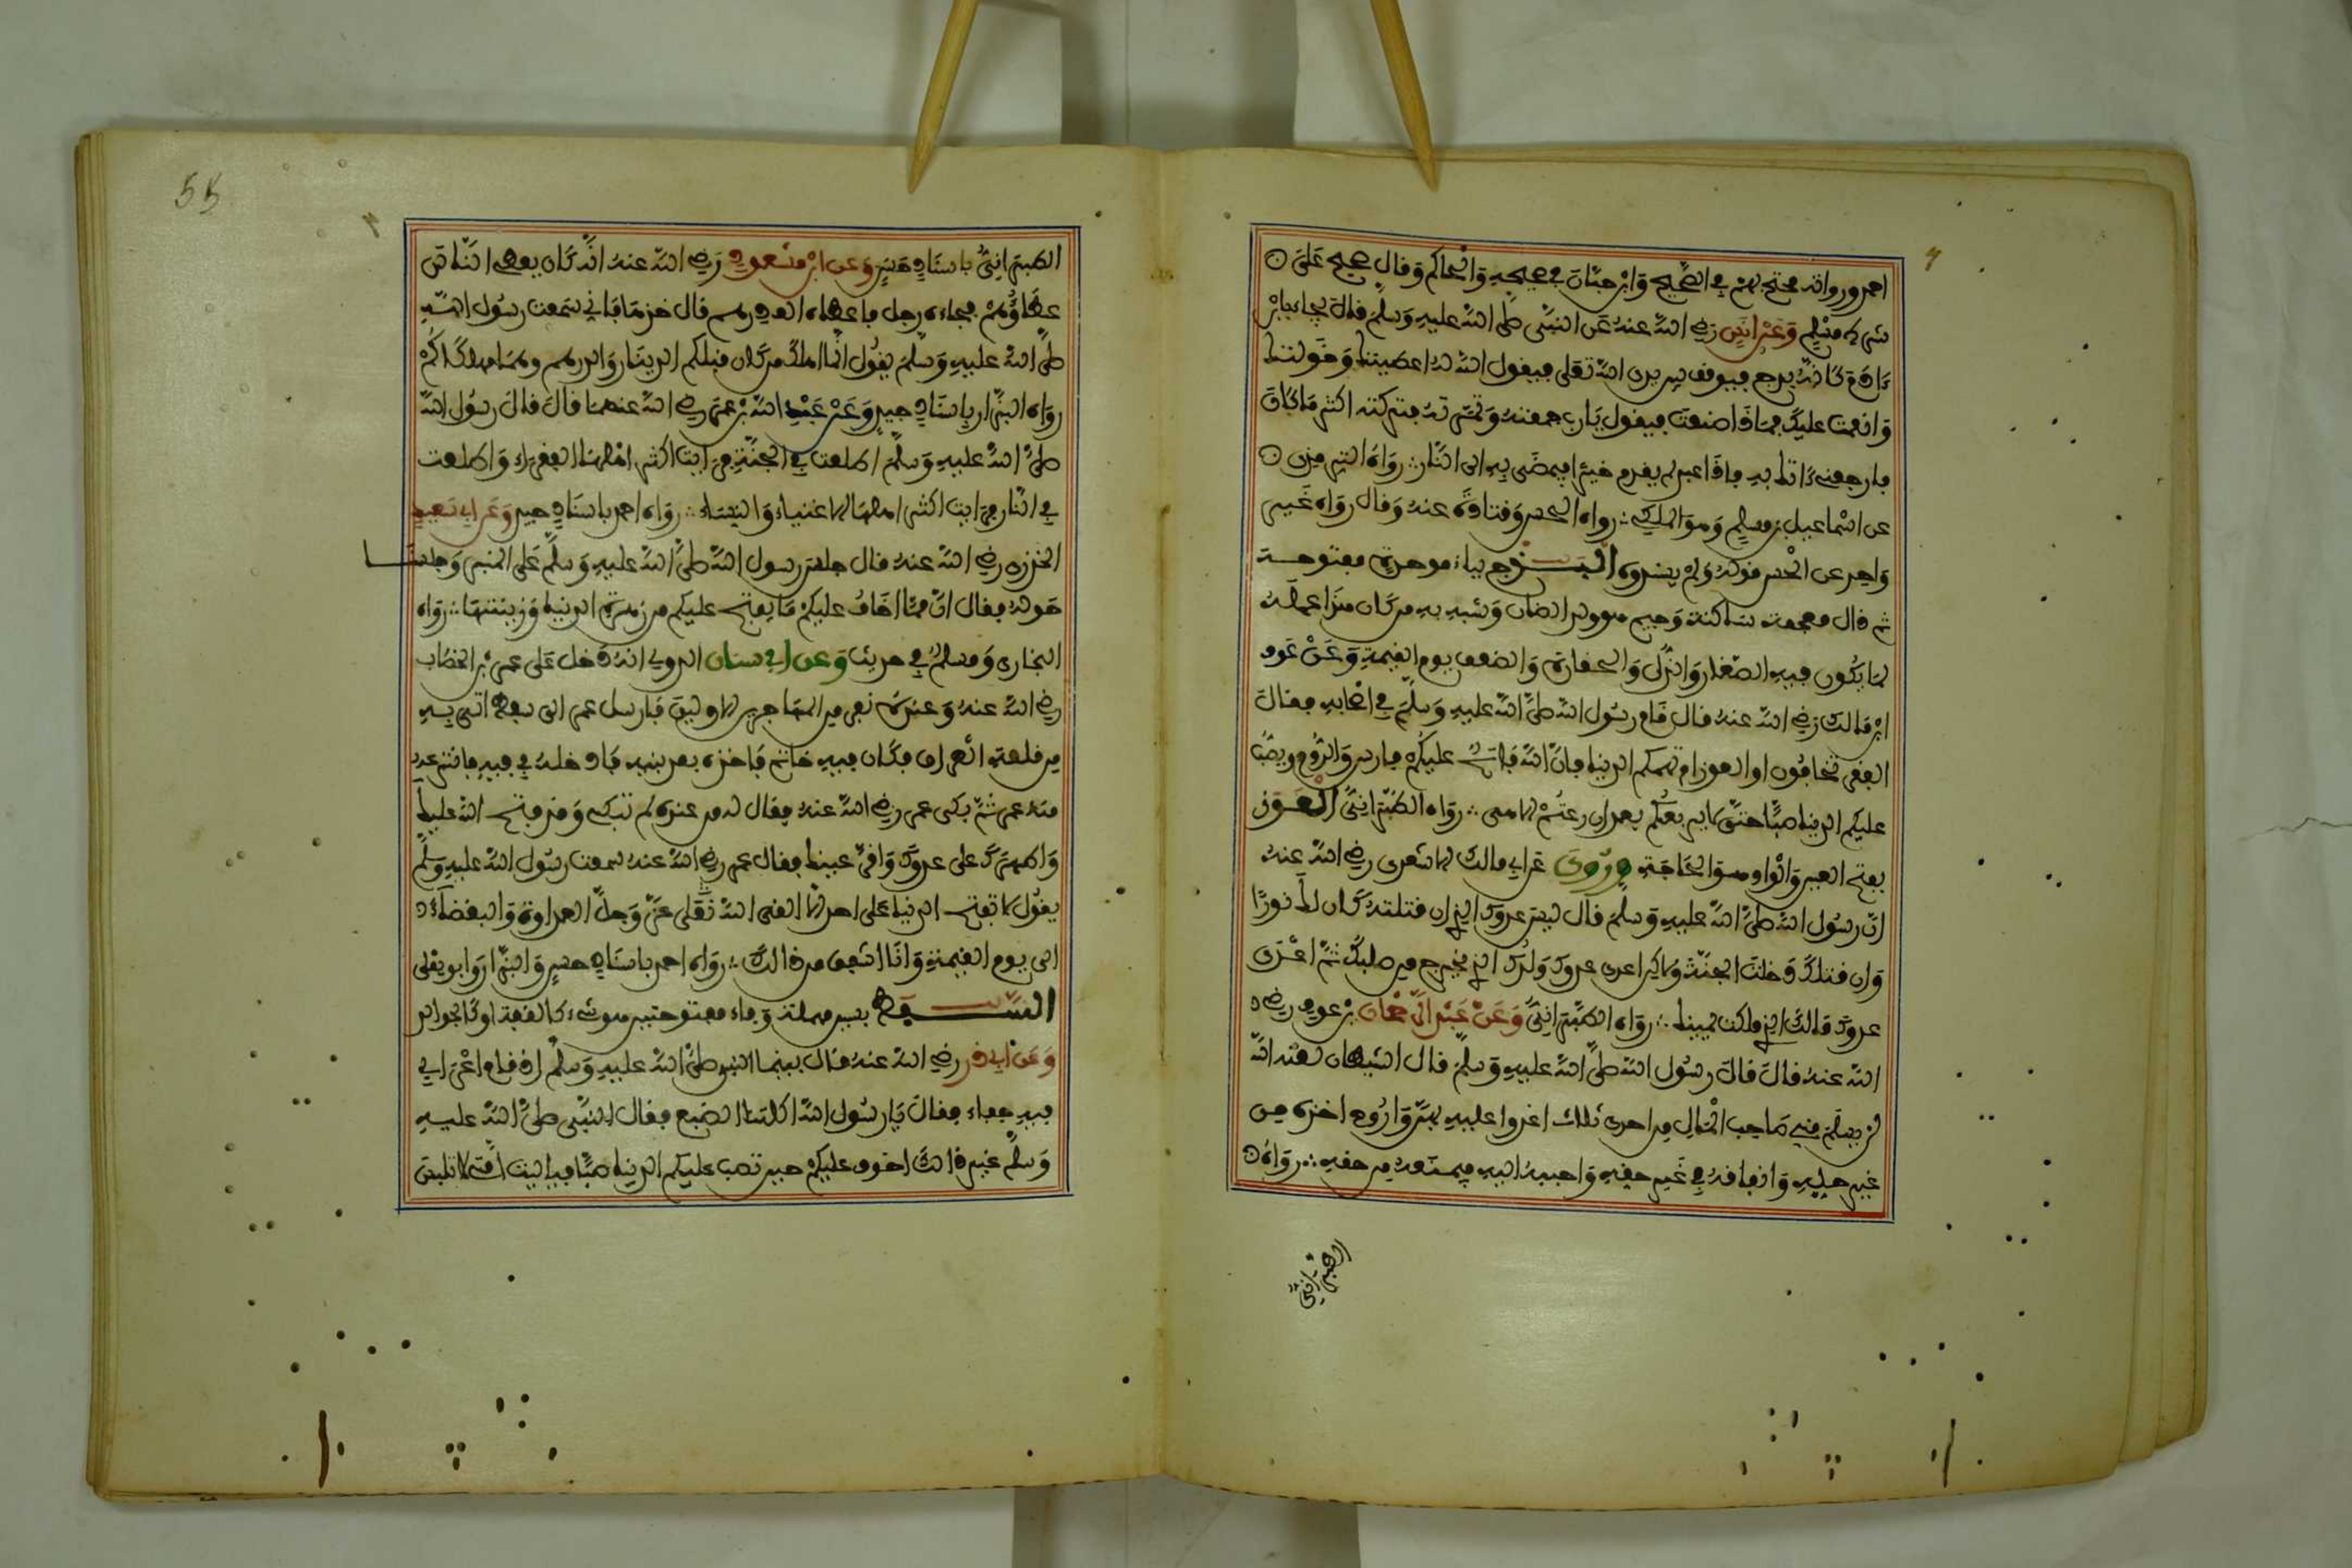 احمد ورواته محتج بهم في الصحيح وابن حبان في صحيحه والحاكم وقال صحيح على
شرط مسلم وعن انس رضي الله عنه عن النبي صلى الله عليه وسلم قال يجاء بابن
ءادم كانه بذج فيوقف بين يدي الله تعلى فيقول الله له اعطيتك وخولتك
وانعمت عليك فماذا صنعت فيقول يا رب جمعته وثمرته فتركته اكثر ما كان
فارجعني ءاتك به فاذا عبد لم يقدم خيرا فيمضى به الى النار رواه الترمذي
عن اسماعيل بن مسلم وهو المكي رواه الحسن وقتادة عنه وقال رواه غير
واحد عن الحسن قوله ولم يسندوه البذج بباء موحدة مفتوحة
ثم ذال معجمة ساكنة وجيم هو ولد الضان وشبه به من كان هذا عمله
لما يكون فيه الصغار والذل والحقارة والضعف يوم القيمة وعن عوف
ابن مالك رضي الله عنه قال قام رسول الله صلى الله عليه وسلم في اصحابه فقال
الفقر تخافون او العوز ام تهمكم الدنيا فان الله فاتح عليكم فارس والروم ويصب
عليكم الدنيا صبا حتى لا يزيغكم بعد ان زغتم الا هي رواه الطبراني العوز
بفتح العين والواو هو الحاجة وروي عن ابي مالك الاشعري رضي الله عنه
ان رسول الله صلى الله عليه وسلم قال ليس عدوك الذي ان قتلته كان لك نورا
وان قتلك دخلت الجنة ولاكن اعدى عدوك ولدك الذي خرج من صلبك ثم اعدى
عدوك مالك الذي ملكت يمينك رواه الطبراني وعن عبد الرحمان بن عوف رضي
الله عنه قال قال رسول الله صلى الله عليه وسلم قال الشيطان لعنه الله
لن يسلم مني صاحب المال من احدى ثلاث اغدوا عليه بهن واروح اخذه من
غير حله وانفاقه في غير حقه واحببه اليه فيمنعه من حقه رواه
الطبراني
55
الطبراني باسناد حسن وعن ابن مسعود رضي الله عنه انه كان يعطي الناس
عطاؤهم فجاءه رجل فاعطاه الف درهم قال خذها فاني سمعت رسول الله
صلى الله عليه وسلم يقول انما اهلك من كان قبلكم الدينار والدرهم وهما مهلكاكم
رواه البزار باسناد جيد وعن عبد الله بن عمر رضي الله عنهما قال قال رسول الله
صلى الله عليه وسلم اطلعت في الجنة فرايت اكثر اهلها الفقراء واطلعت
في النار فرايت اكثر اهلها الاغنياء والنساء رواه احمد باسناد جيد وعن ابي سعيد
الخدري رضي الله عنه قال جلس رسول الله صلى الله عليه وسلم على المنبر وجلسنا
حوله فقال ان مما اخاف عليكم ما يفتح عليكم من زهرة الدنيا وزينتها رواه
البخاري ومسلم في حديث وعن ابي سنان الدولي انه دخل على عمر بن الخطاب
رضي الله عنه وعنده نفر من المهاجرين الاولين فارسل عمر الى سفط اتي به
من قلعة العراق فكان فيه خاتم فاخذه بعض بنيه فادخله في فيه فانتزعه
منه عمر ثم بكى عمر رضي الله عنه فقال له من عنده لم تبكي وقد فتح الله عليك
واظهرك على عدوك واقر عينك فقال عمر رضي الله عنه سمعت رسول الله عليه وسلم
يقول لا تفتح الدنيا على احد الا القى الله تعلى عز وجل العداوة والبغضاء
الى يوم القيمة وانا اشفق من ذالك رواه احمد باسناد حسن والبزار وابو يعلى
السفط بسين مهملة وفاء مفتوحتين هو شيء كالقفة او كالجوالق
وعن ابي ذر رضي الله عنه قال بينما النبي صلى الله عليه وسلم اذ قام اعرابي
فيه جفاء فقال يا رسول الله اكلتنا الضبع فقال النبي صلى الله عليه
وسلم غير ذالك اخوف عليكم حين تصب عليكم الدنيا صبا فياليت امتي لا تلبس